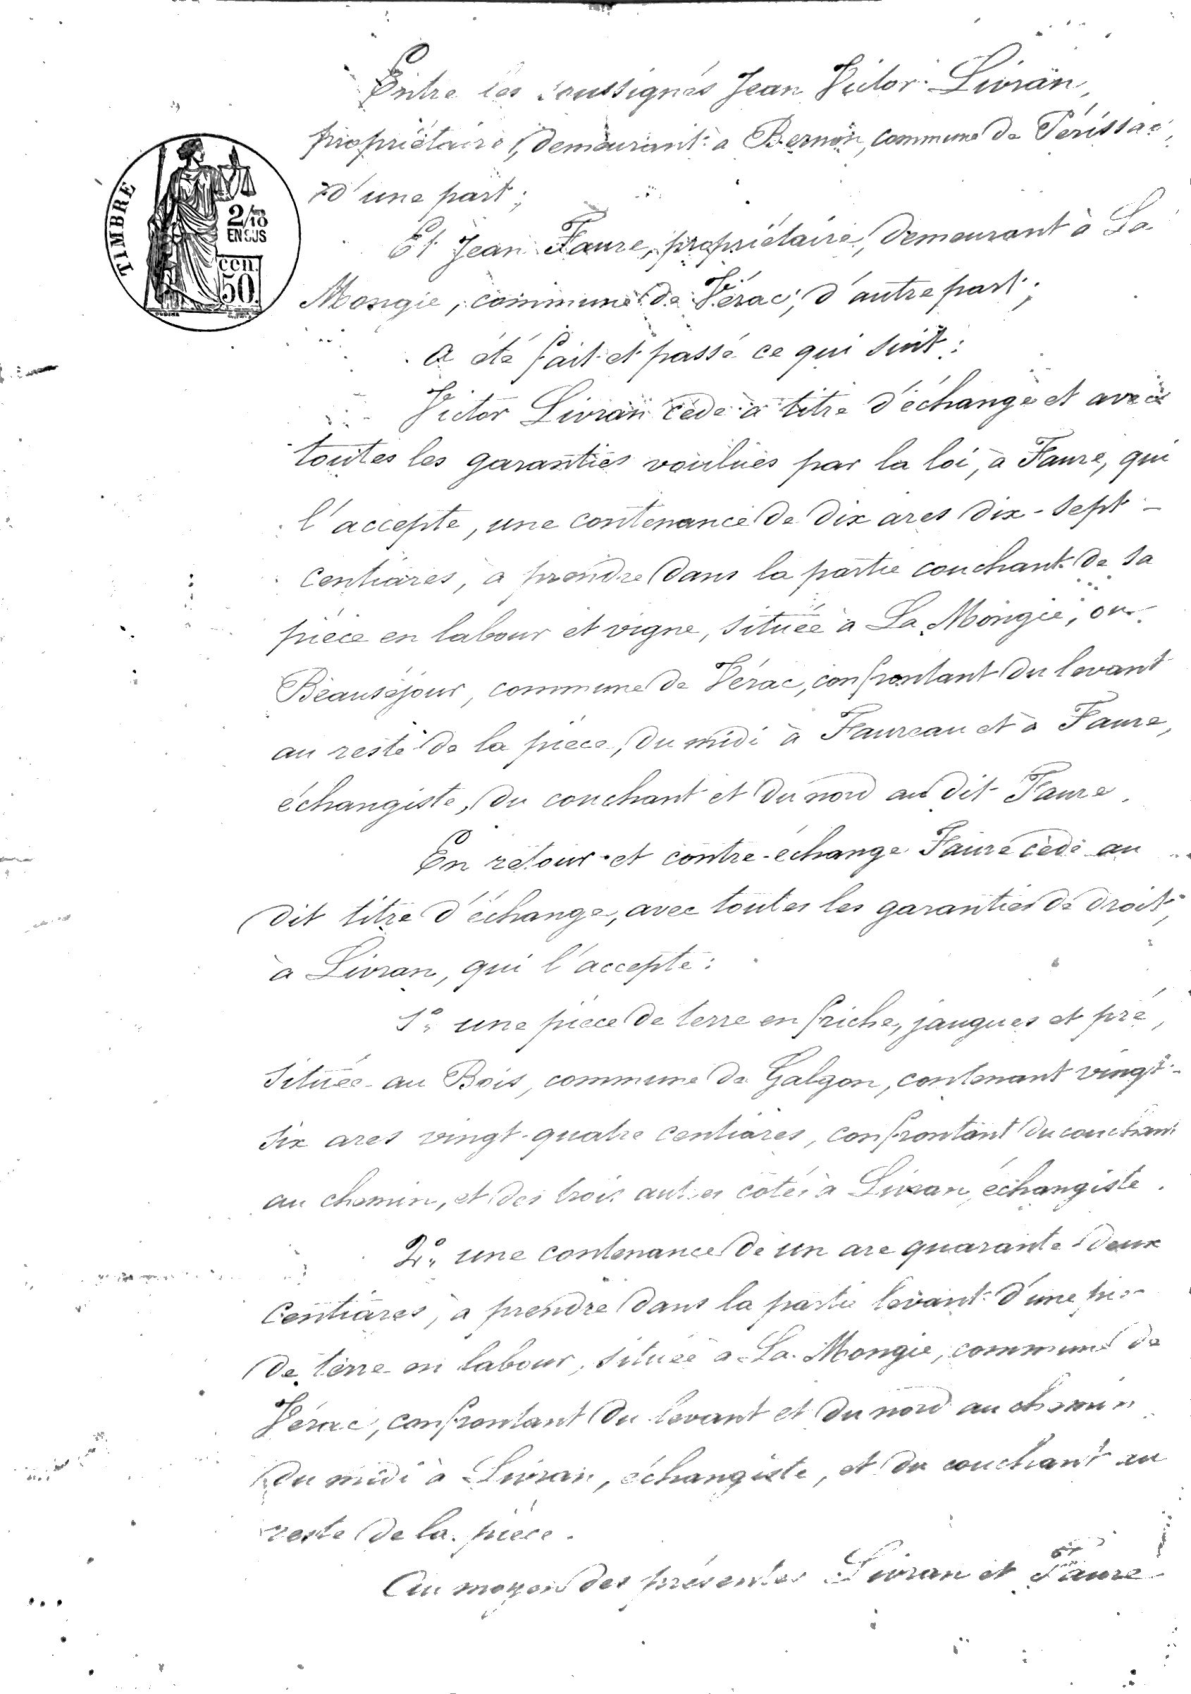 Entre les soussignés Jean Victor Livran,
propriétaire, demeurant à Bernon, commune de Périssac,
d'une part;
TIMBRE
2/10
EN SUS
cen.
50
Et Jean Faure, propriétaire, demeurant à La
Mongie, commune de Vérac, d'autre part;
a été fait et passé ce qui suit:
Victor Livran cède à titre d'échange et avec
toutes les garanties voulues par la loi, à Faure, qui
l'accepte, une contenance de dix ares dix-sept
centiares, à prendre dans la partie couchant de sa
pièce en labour et vigne, située à La Mongie, ou
Beauséjour, commune de Vérac, confrontant du levant
au reste de la pièce, du midi à Faureau et à Faure,
échangiste, du couchant et du nord au dit Faure.
En retour et contre-échange Faure cède au
dit titre d'échange, avec toutes les garanties de droit,
à Livran, qui l'accepte:
1° une pièce de terre en friche, jaugues et pré,
située au Bois, commune de Galgon, contenant vingt-
six ares vingt-quatre centiares, confrontant du couchant
au chemin, et des trois autres cotés à Livran, échangiste.
2° une contenance de un are quarante deux
centiares, à prendre dans la partie levant d'une
de terre en labour, située à La Mongie, commune de
Vérac, confrontant du levant et du nord au chemin
du midi à Livran, échangiste, et du couchant au
reste de la pièce.
Au moyen des présentes Livran et Faure